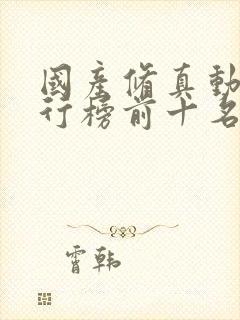 國產脩真動
行榜前十名
霄韩